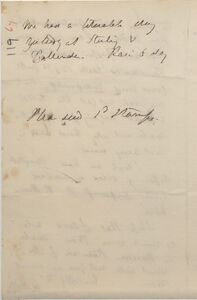 We had a tolerable day
yesterday at Stirling &
Callander. Rain to day
Please send 1d Stamps.
119